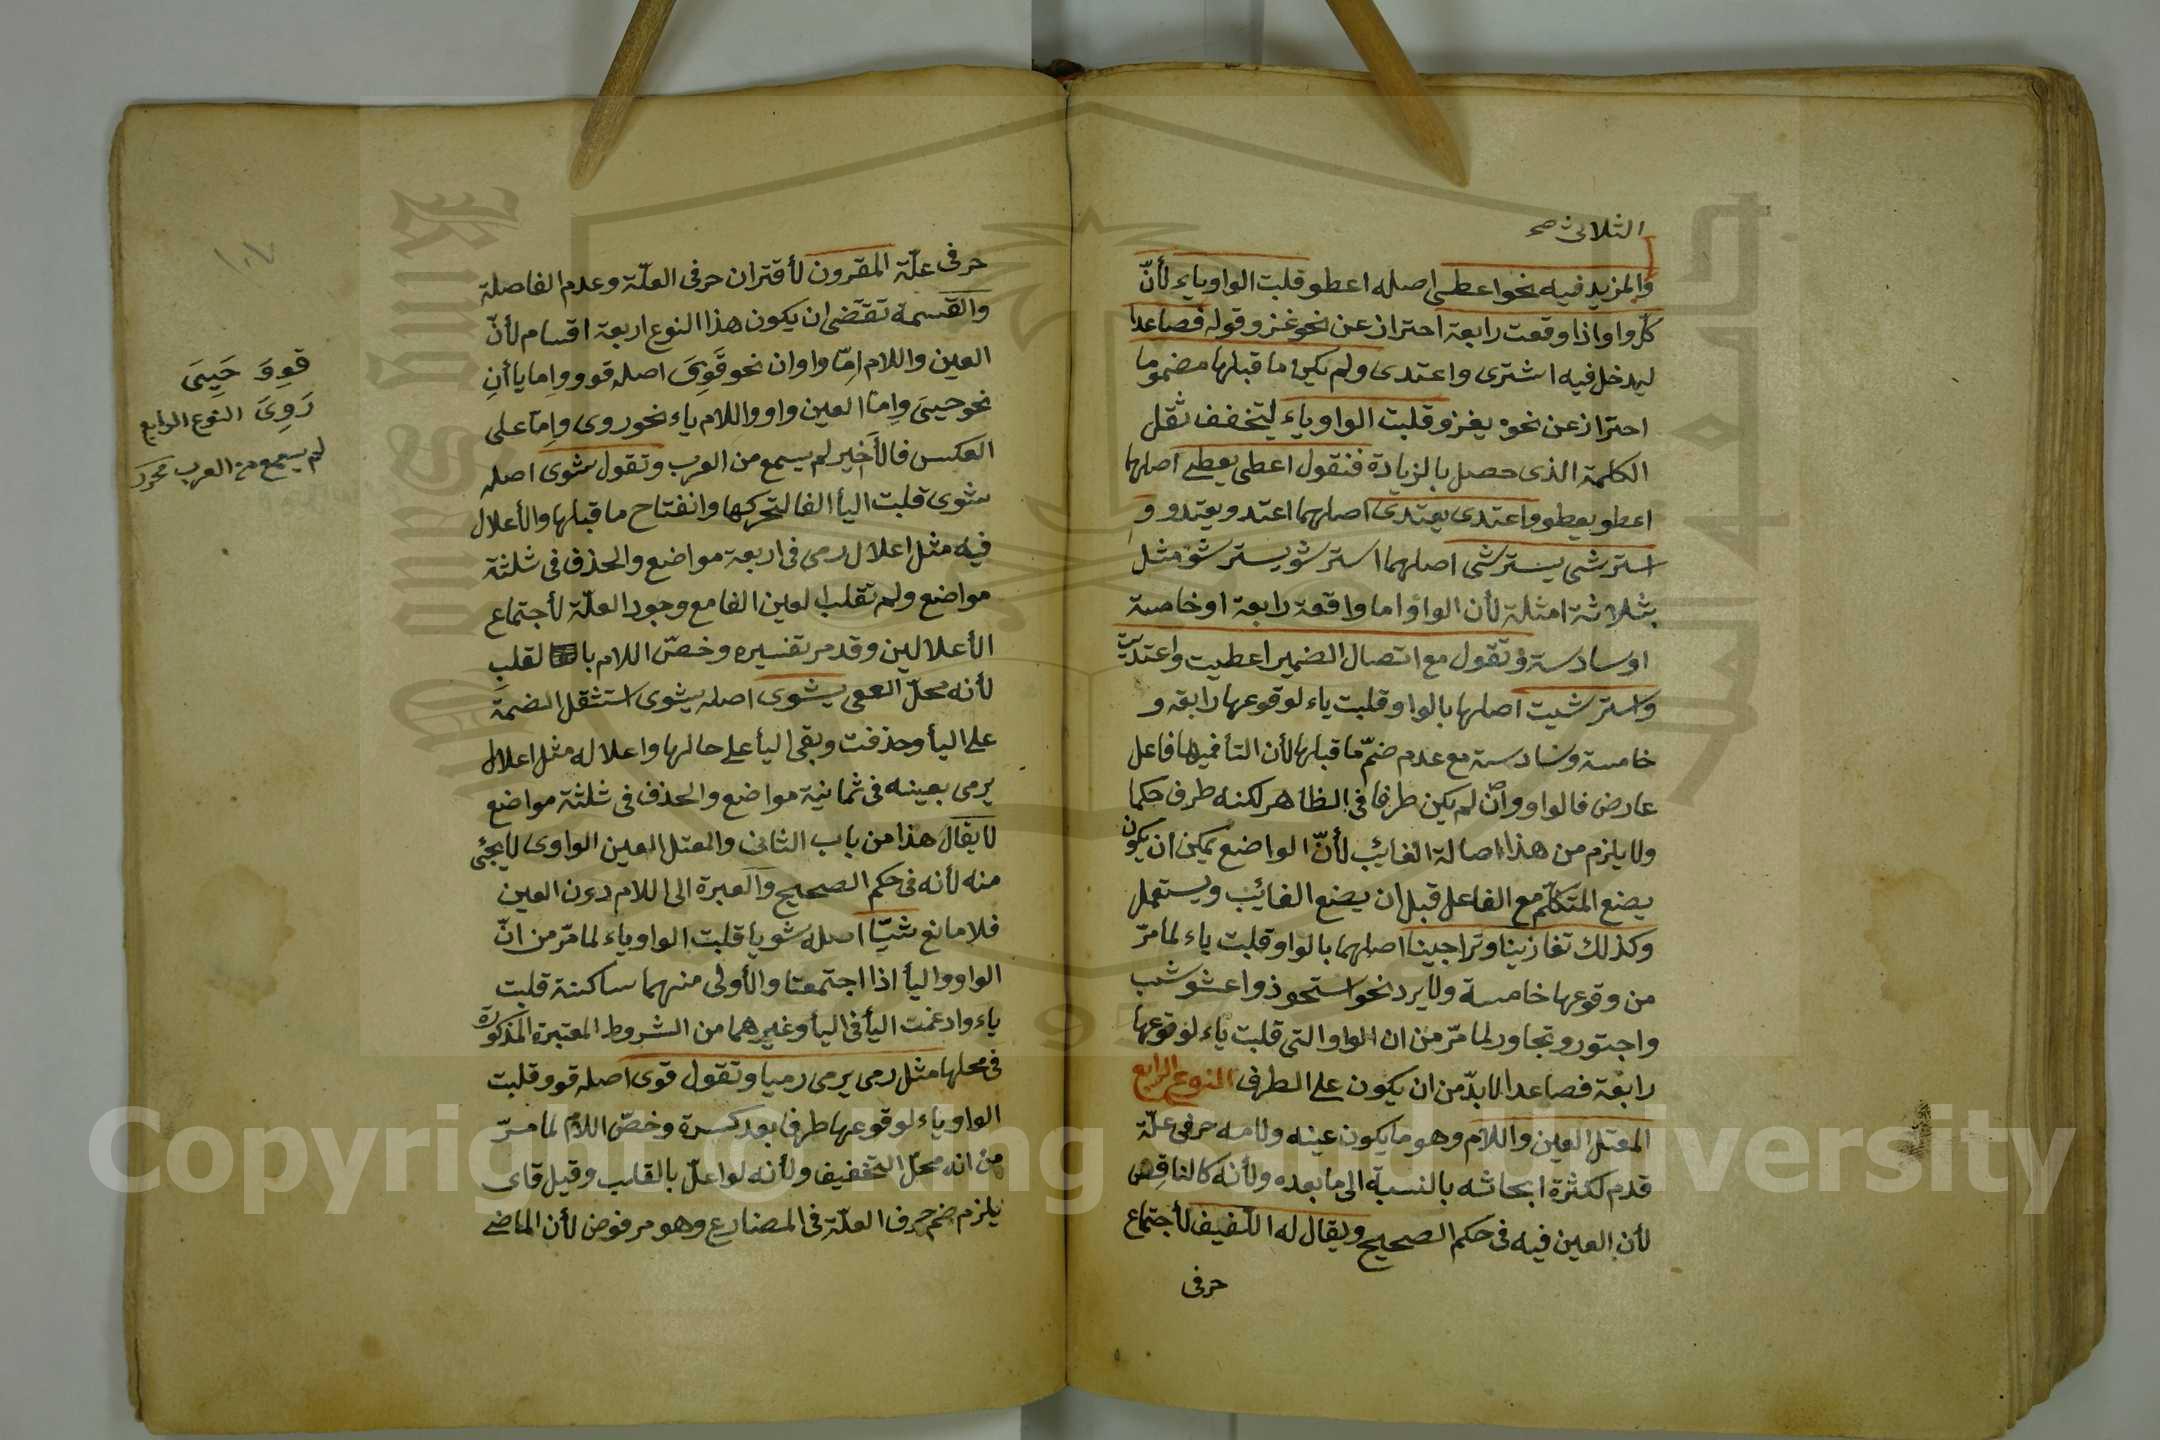 الثلاثى صح
والمزيد فيه نحو اعطى اصله اعطو قلبت الواو ياء لأنّ
كلّ واو اذا وقعت رابعة احتراز عن نحو غزو وقوله فصاعدا
ليدخل فيه اشترى واعتدى ولم يكن ما قبلها مضموما
احتراز عن نحو يغزو قلبت الواو ياء ليتخفف ثقل
الكلمة الذى حصل بالزيادة فنقول اعطى يعطى اصلها
اعطو يعطو واعتدى يعتدى اصلهما اعتدو يعتدو و
استرشى يسترشى اصلهما استرشو يسترشو مثل
بثلاثة امثلة لأن الواو اما واقعة رابعة او خامسة
او سادسة وتقول مع اتصال الضمير اعطيت واعتديت
واسترشيت اصلها بالواو قلبت ياء لوقوعها رابعة و
خامسة وسادسة مع عدم ضمّ ما قبلها لأن التأ فيها فاعل
عارض فالواو وان لم يكن طرفا فى الظاهر لكنه طرف حكما
ولا يلزم من هذا اصالة الغائب لأنّ الواضع يمكن ان يكون
يضع المتكلّم مع الفاعل قبل ان يضع الغائب ويستعمل
وكذلك تغازينا وتراجينا اصلهما بالواو قلبت ياء لما مرّ
من وقوعها خامسة ولا يرد نحو استحوذ واعشوشب
واجتور وتجاور لما مرّ من ان الواو التى قلبت ياء لوقوعها
رابعة فصاعدا لا بدّ من ان يكون على الطرف النوع الرابع
المعتل العين واللام وهو ما يكون عينه ولامه حرفى علّة
قدم لكثرة ابحاثه بالنسبة الى ما بعده ولأنه كالناقص
لأن العين فيه فى حكم الصحيح ويقال له اللّفيف لأجتماع
حرفى
حرفى علّة المقرون لأقتران حرفى العلّة وعدم الفاصلة
والقسمة تقتضى ان يكون هذا النوع اربعة اقسام لأنّ
العين واللام اِمّا واوان نحو قَوِىَ اصله قوو واِما يا أنِ
نحو حيىَ واِمّا العين واو واللام ياء نحو روى واِمّا على
العكس فالأخير لم يسمع من العرب وتقول شوى اصله
شوى قلبت اليأ الفا لتحركها وانفتاح ما قبلها والأعلال
فيه مثل اعلال رمى فى اربعة مواضع والحذف فى ثلثة
مواضع ولم تقلب العين الفا مع وجود العلّة لأجتماع
الأعلالين وقد مر تفسيره وخصّ اللام با لقلب
لأنه محلّ يشوى اصله يشوى استثقل الضمة
على اليأ وحذفت وبقى اليأ على حالها واعلاله مثل اعلال
يرمى بعينه فى ثمانية مواضع والحذف فى ثلثة مواضع
لا يقال هذا من باب الثانى والمعتل العين الواوى لا يجئ
منه لأنه فى حكم الصحيح والعبرة الى اللام دون العين
فلا مانع شيّا اصله شويا قلبت الواو ياء لما مرّ من انّ
الواو واليأ اذا اجتمعتا والأولى منهما ساكنة قلبت
ياء وادغمت اليأ فى اليأ وغيرهما من الشروط المعتبرة المذكورة
فى محلها مثل رمى يرمى رميا وتقول قوى اصله قوو قلبت
الواو ياء لوقوعها طرفا بعد كسرة وخصّ اللام لما مرّ
من انه محلّ التخفيف ولأنه لو اعلّ بالقلب وقيل قاى
يلزم ضم حرف العلّة فى المضارع وهو مرفوض لأن الماضى
قوِوَ حَيِىَ
رَوِىَ النوع الرابع
لم يسمع من العرب
١٠٧
Copyright © King Saud University